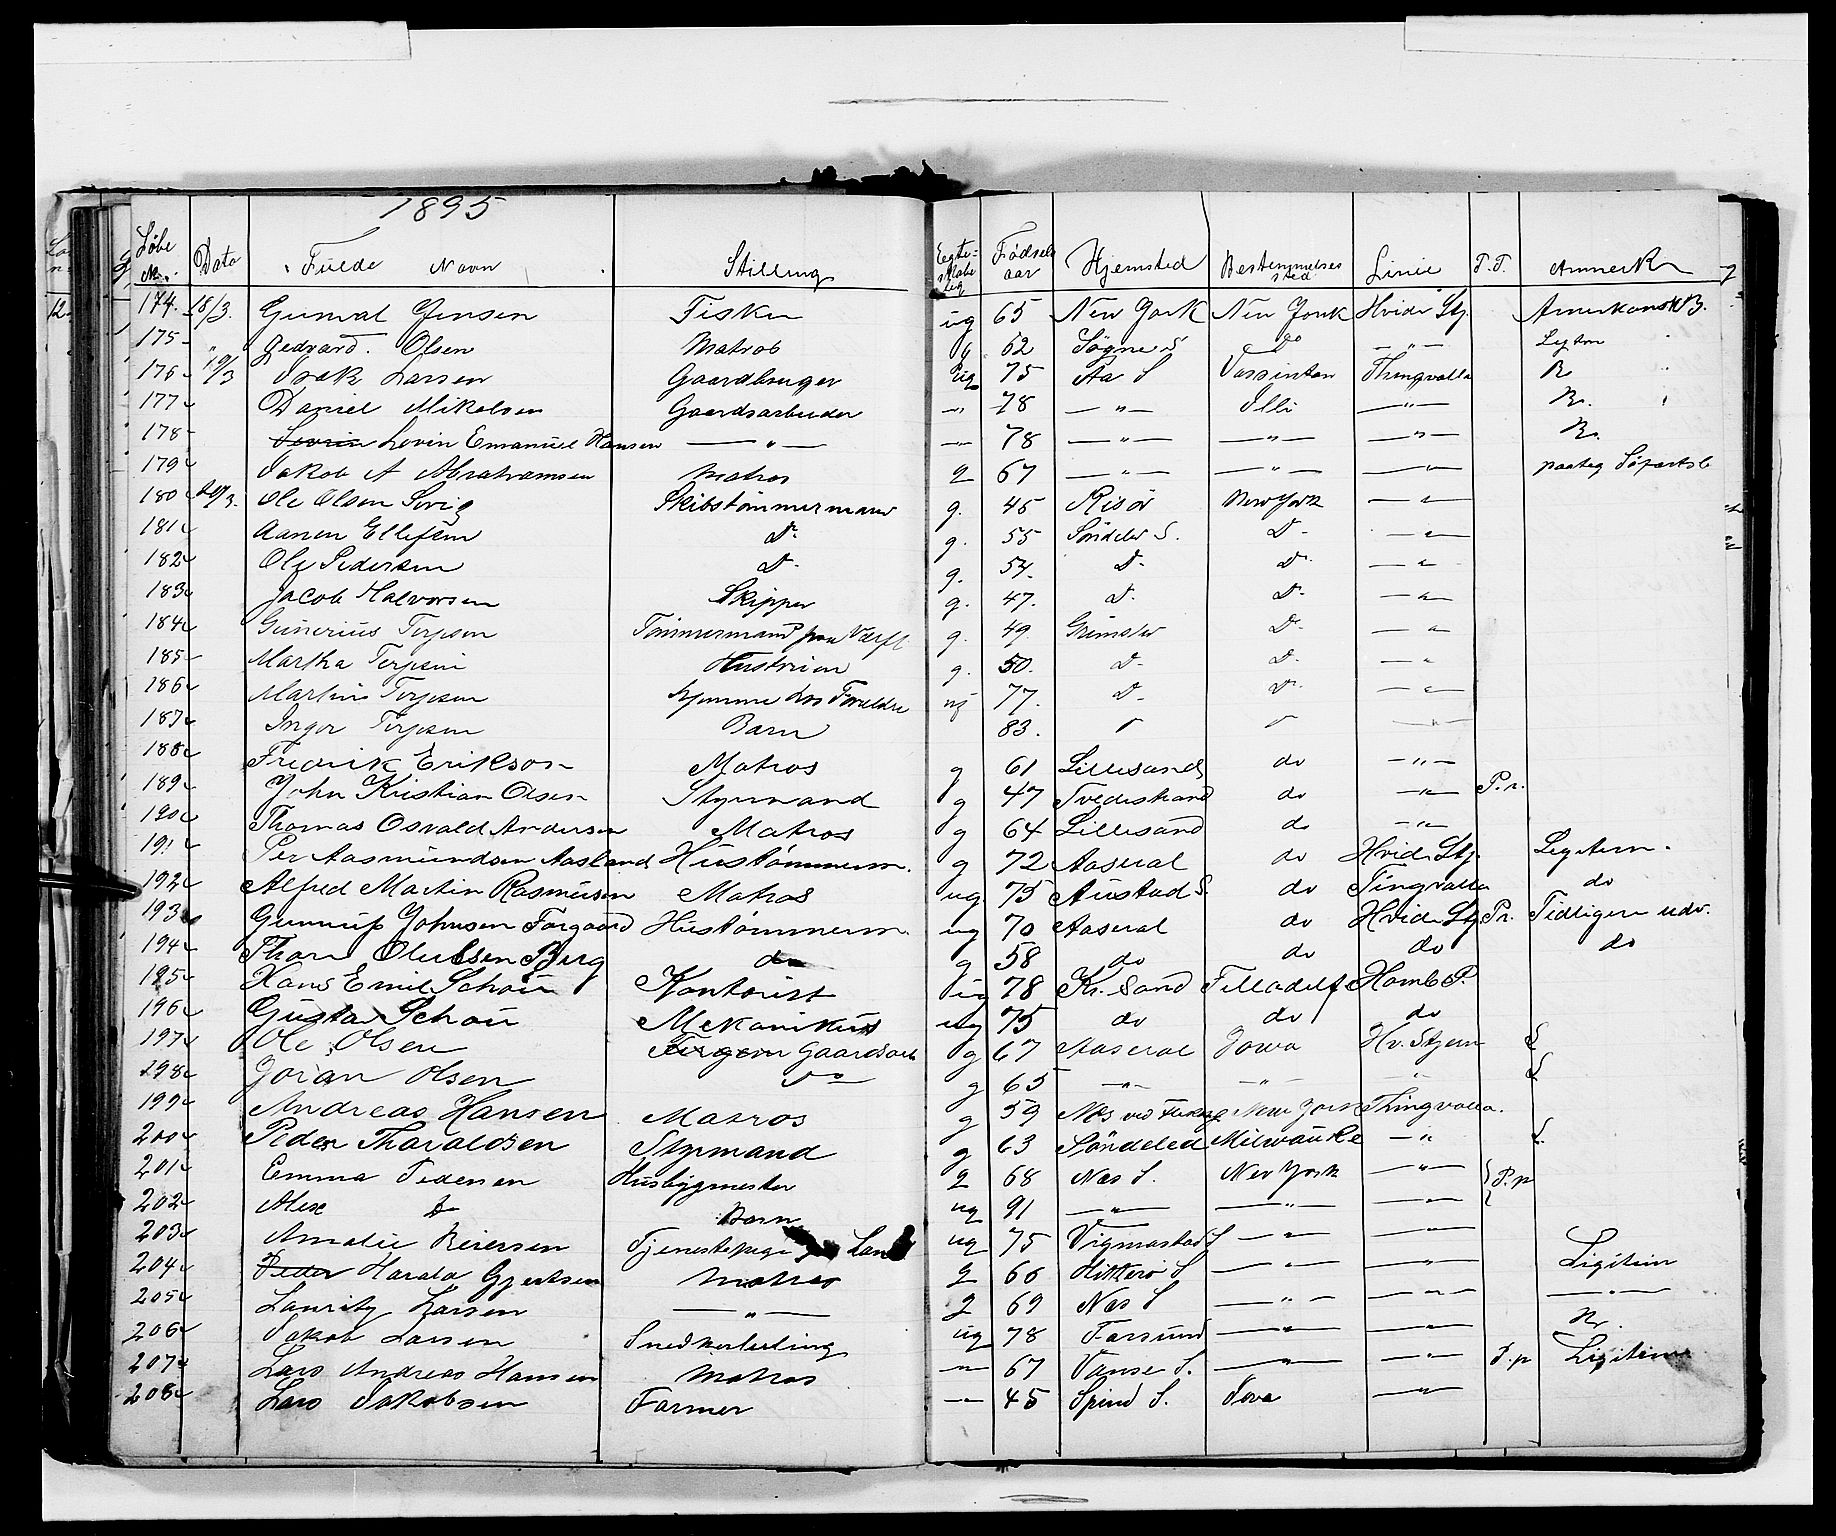 1895
Løbe No. Dato Fulde Navn Stilling Egteskabelig Fødselsaar Hjemsted Bestemmelsessted Linie P.T. Anmerk
174. 18/3. Gunval Jensen Fisker ug 65 New York New York Hvide Stj. Amerikansk B.
175 " Gedvard. Olsen Matros g 62 Søgne S do —"— Legtm
176 19/3 Isak Larsen Gaardbruger ug 75 Aa S Vassinton Thingvalla
177 Daniel Mikalsen Gaardsarbeider —"— 78 —"— Illi —"—
178 Lovin Emanuel Hansen —"— —"— 78 —"— —"— —"—
179 Jakob A Abrahamsen Matros g 67 —"— —"— —"— paateg Søfartsb
180 20/3. Ole Olsen Sørig Skibstømmermand g. 45 Risør New York —"—
181 Aanen Ellefsen Do g. 55 Søndeler S. Do —"—
182 Ole Pedersen Do g. 54. Do Do —"—
183 Jacob Halvorsen Skipper g. 47. Do Do —"—
184 Gunerius Terjesen Tømmermand paa Værft g. 49. Grimstad Do —"—
185 Martha Terjesen Hustruen g. 50. Do Do —"—
186 Martin Terjesen hjemme hos Forældre ug 77. Do Do —"—
187 Inger Terjesen Barn 83. " " —"—
188 Fredrik Erikson Matros g 61 Lillesand do —"—
189 John Kristian Olsen Styrmand g 47 Tvedestrand do —"— P.r.
190 Thomas Osvald Andersen Matros g 64 Lillesand do —"—
191 Per Aasmundsen Aasland Hustømmerm. g 72 Aaseral do Hvide Stj. Legitem.
192 Alfred Martin Rasmusen Matros ug. 75 Austad S. do Tingvalla do
193 Gunnuf Johnsen Forgaard Hustømmerm. ug 70 Aaseral do Hvide Stj. Pr. Tidligere udv.
194 Thore Olulsen Berg do g 58 do do do do
195 Hans Emil Schou Kontorist ug 78 Kr. Sand Filladelf Hamb P.
196 Gustav Schou Mekanikus ug 75 do do do
197 Ole Olsen Gaardsarb g 67 Aaseral Jowa Hv. Stjern L
198 Goran Olsen Do g 65 —"— —"— —"— L
199 Andreas Hansen Matros g 59 Næs New York Thingvalla.
200 Peder Tharaldsen Styrmand g 63 Søndeled Milwauke —"— L
201 Emma Pedersen Husbygmester g 68 Næs S. New York —"— P.p
202 Alex Do Barn ug 91 —"— —"— —"—
203 Amalie Reiersen Tjenestepige Land ug 75 Vigmostad S —"— —"—
204 Peder Harald Gjertsen Matros g 66 Hitterø S —"— —"— Ligitim
205 Lauritz Larsen —"— g 69 Næs S —"— —"— —"—
206 Jakob Larsen Snedkerlerling ug 78 Farsund —"— —"—
207 Lars Andreas Hansen Matros —"— 67 Vanse S. —"— —"— P.p Ligitim
208 Lars Jakobsen Farmer —"— 45 Spind S. Iova —"—